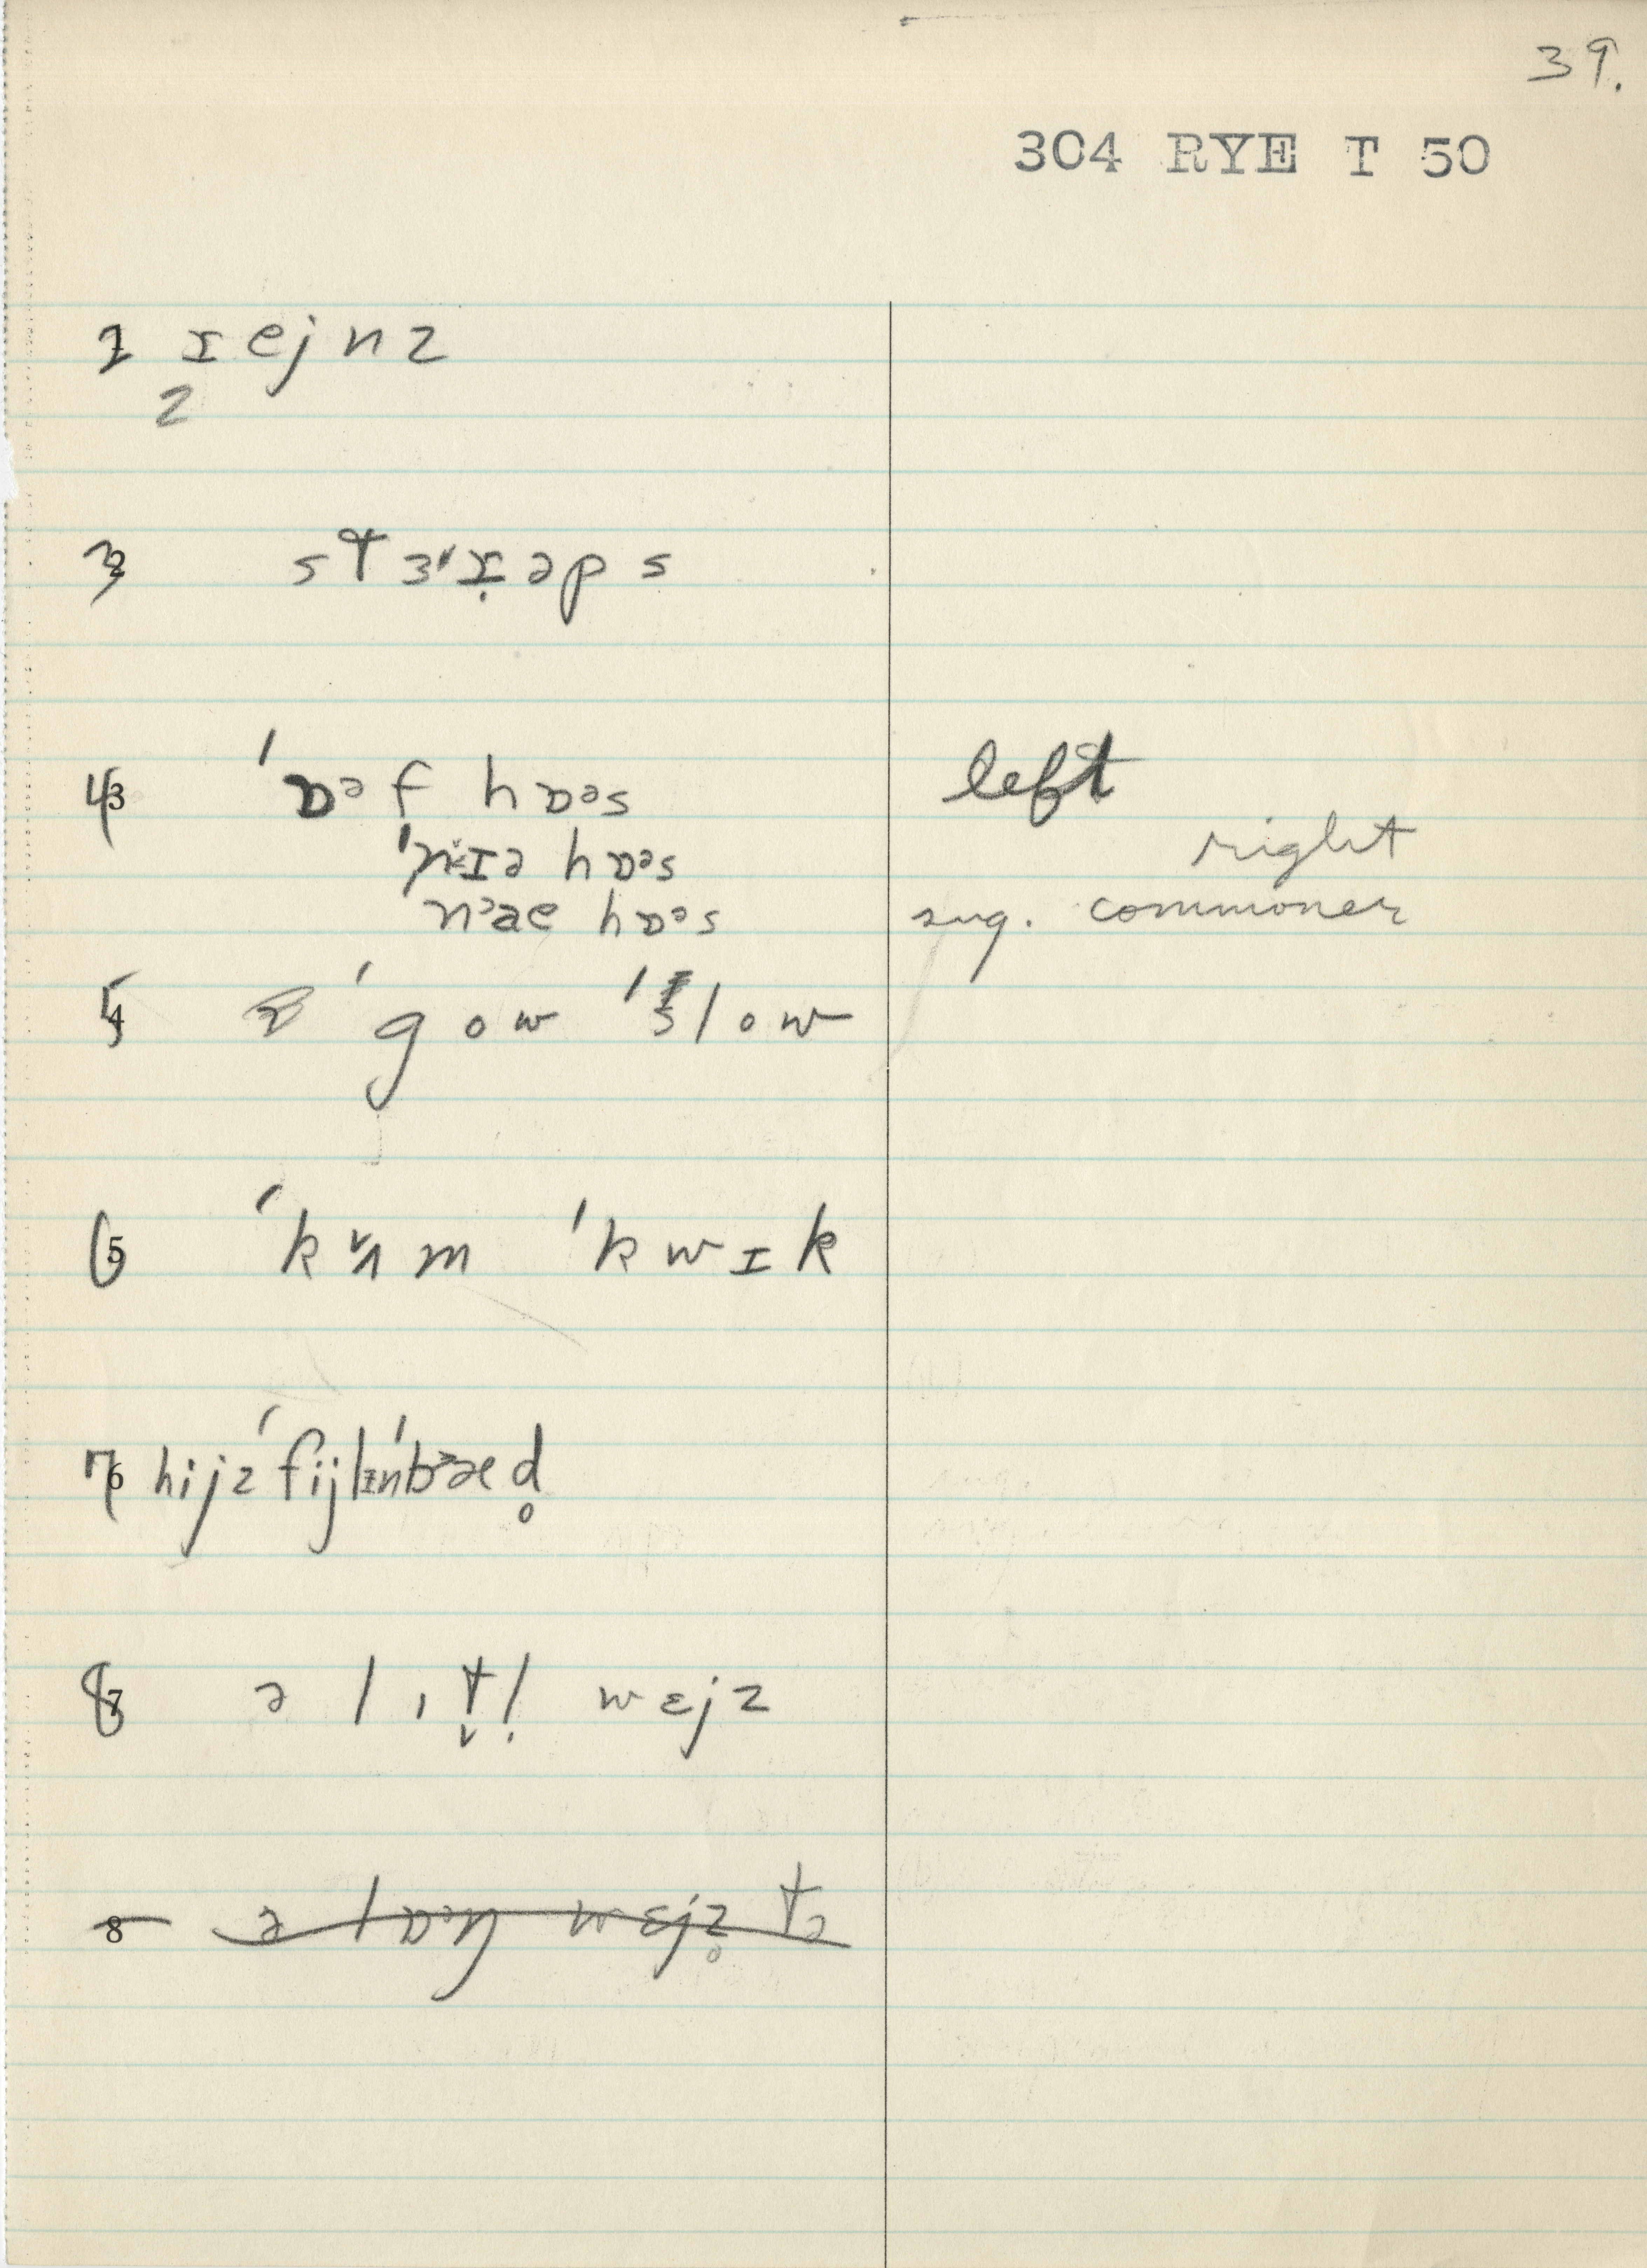 39.
304 RYE T 50
1 ɪejnz
2
3 2 sтɜ'ɪ̣əps
4 3 'ɒᵊf hɒᵊs left
'nɪə hɒᵊs right
hɒᵊs sug. commoner
5 4 'gow 'slow
6 5 'k m 'kwɪk
7 6 hijz 'fijlɪn 'bᵊæd̥
8 7 ə lɪt̬l̩ wɛjz
8 ə lɒᵊŋ wɛjz̥ tə